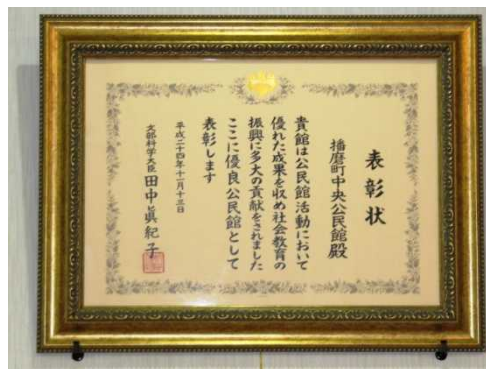 表彰状
播磨町中央公民館殿
貴館は公民館活動において
優れた成果を収め社会教育の
振興に多大の貢献をされました
ここに優良公民館として
表彰します
平成二十四年十一月十三日
文部科学大臣 田中眞紀子